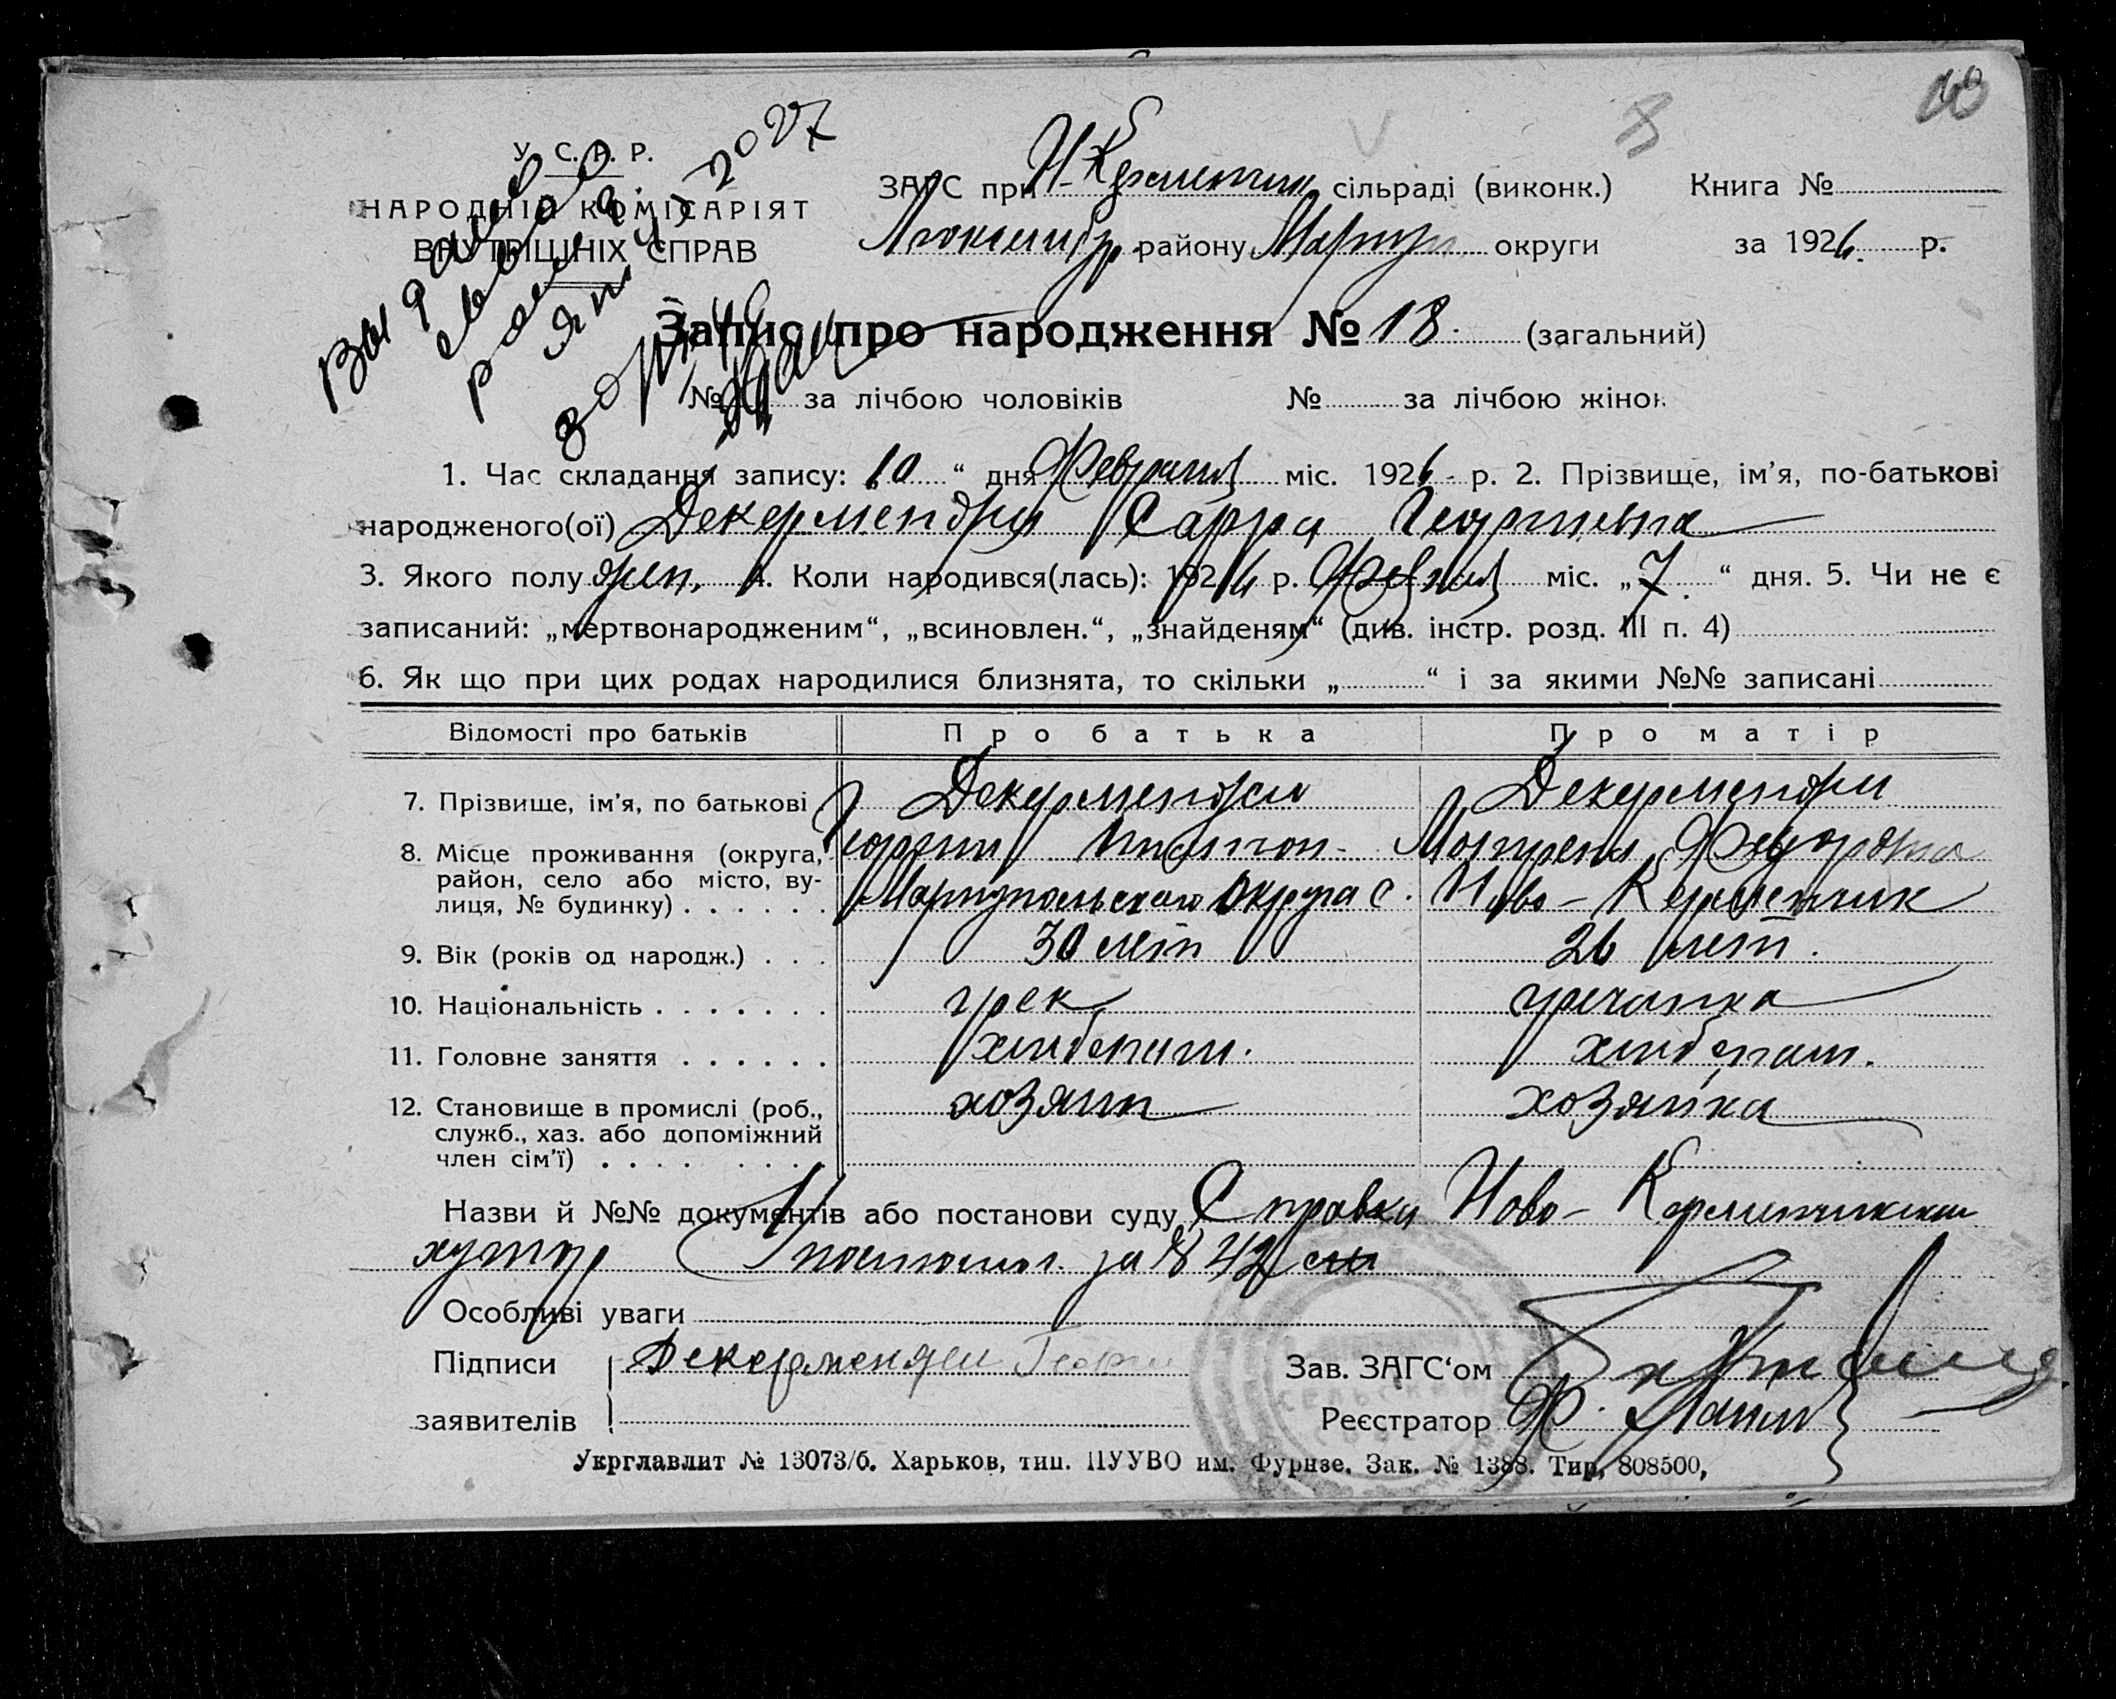 У. С. Р. Р.
НАРОДНІЙ КОМІСАРІЯТ
ВНУТРІШНІХ СПРАВ
ЗАГС при Н-Керменчик сільраді (виконк.) Книга №
району Мариуп. округи за 1926 р.
Запис про народження № 18. (загальний)
№ за лічбою чоловіків № за лічбою жінок
1. Час складання запису: „10“ дня Февраля міс. 1926 р. 2. Прізвище, ім’я, по-батькові
народженого(ої) Декерменджи Сарра Георгиевна
3. Якого полу жен. 4. Коли народився(лась): 1926 р. Февраля міс. „7“ дня. 5. Чи не є
записаний: „мертвонародженим“, „всиновлен.“, „знайденям“ (див. інстр. розд. III п. 4)
6. Як що при цих родах народилися близнята, то скільки „ “ і за якими №№ записані
Відомості про батьків Про батька Про матір
7. Прізвище, ім’я, по батькові Декерменджи Декерменджи
Георгий Федоровна
8. Місце проживання (округа,
район, село або місто, ву-
лиця, № будинку) Мариупольского Округа с. Ново-Керменчик
9. Вік (років од народж.) 30 лет 26 лет.
10. Національність грек гречанка
11. Головне заняття хлебопаш. хлебопаш.
12. Становище в промислі (роб., хозяин хозяйка
служб., хаз. або допоміжний
член сім’ї)
Назви й №№ документів або постанови суду Справка Ново-Керменчикский
за № 42
Особливі уваги
Підписи Декерменджи Георги Зав. ЗАГС‘ом
заявителів Реєстратор
Укрглавлит № 13073/б. Харьков, тип. ПУУВО им. Фрунзе. Зак. № 1388. Тир. 808500,